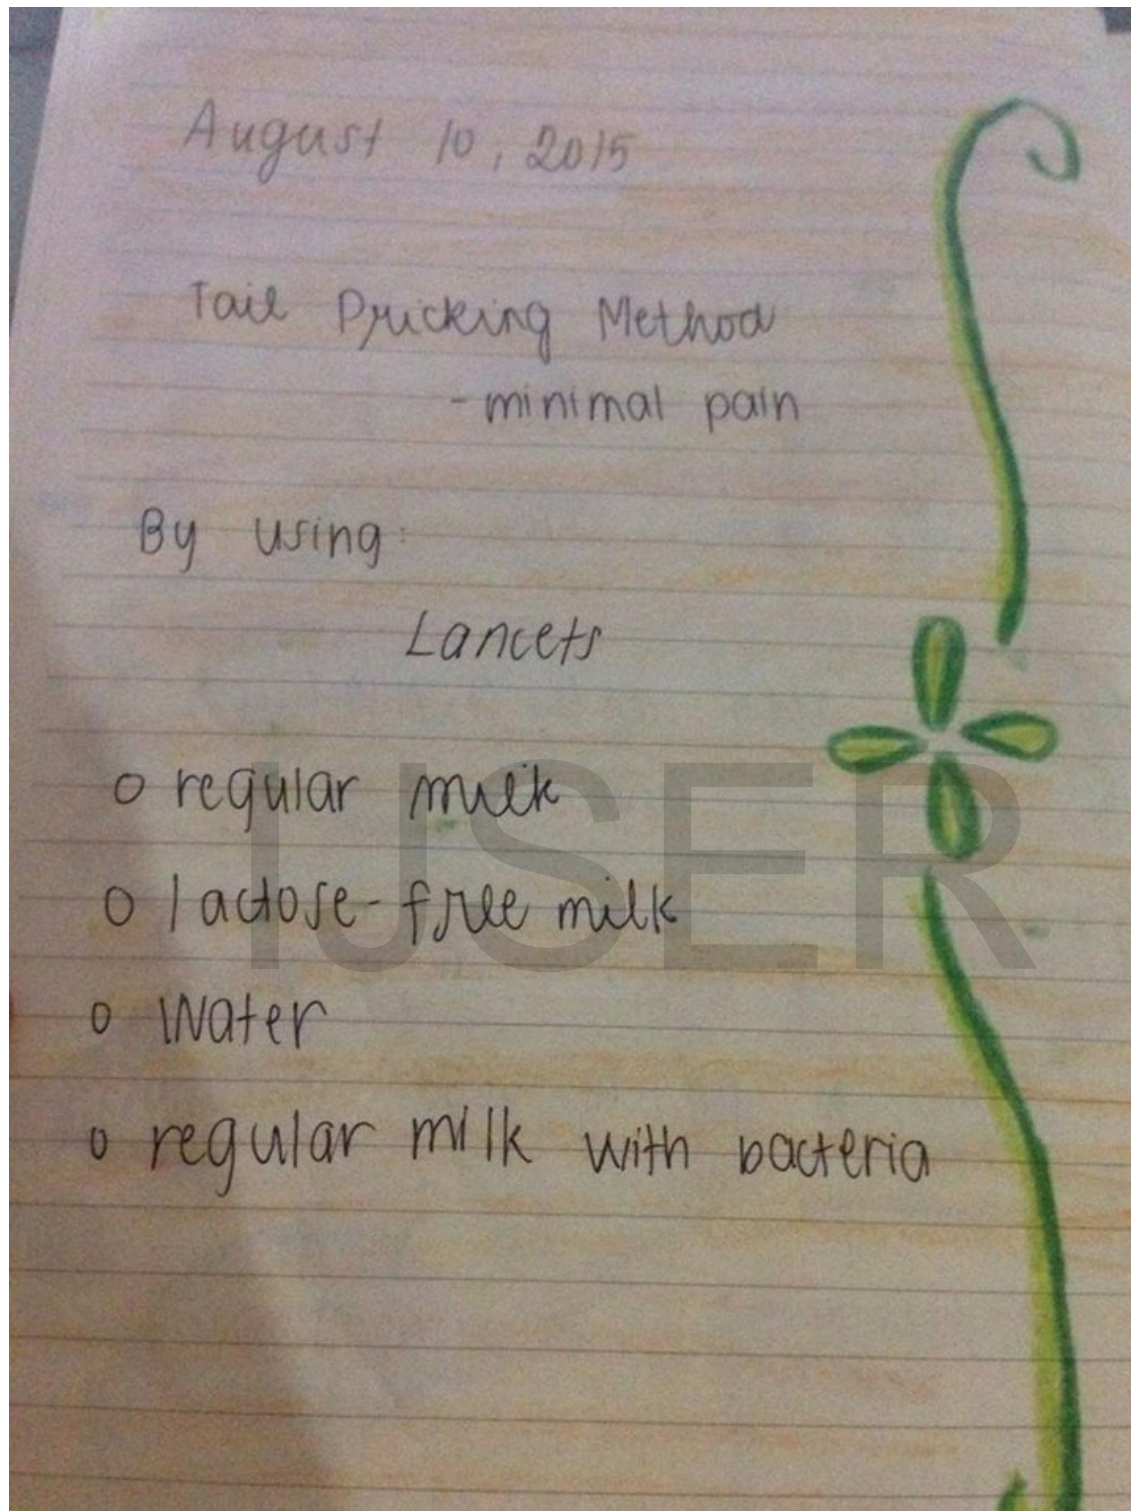 August 10, 2015
Tail Pricking Method
- minimal pain
By using:
Lancets
o regular milk
o lactose-free milk
IJSER
o Water
o regular milk with bacteria